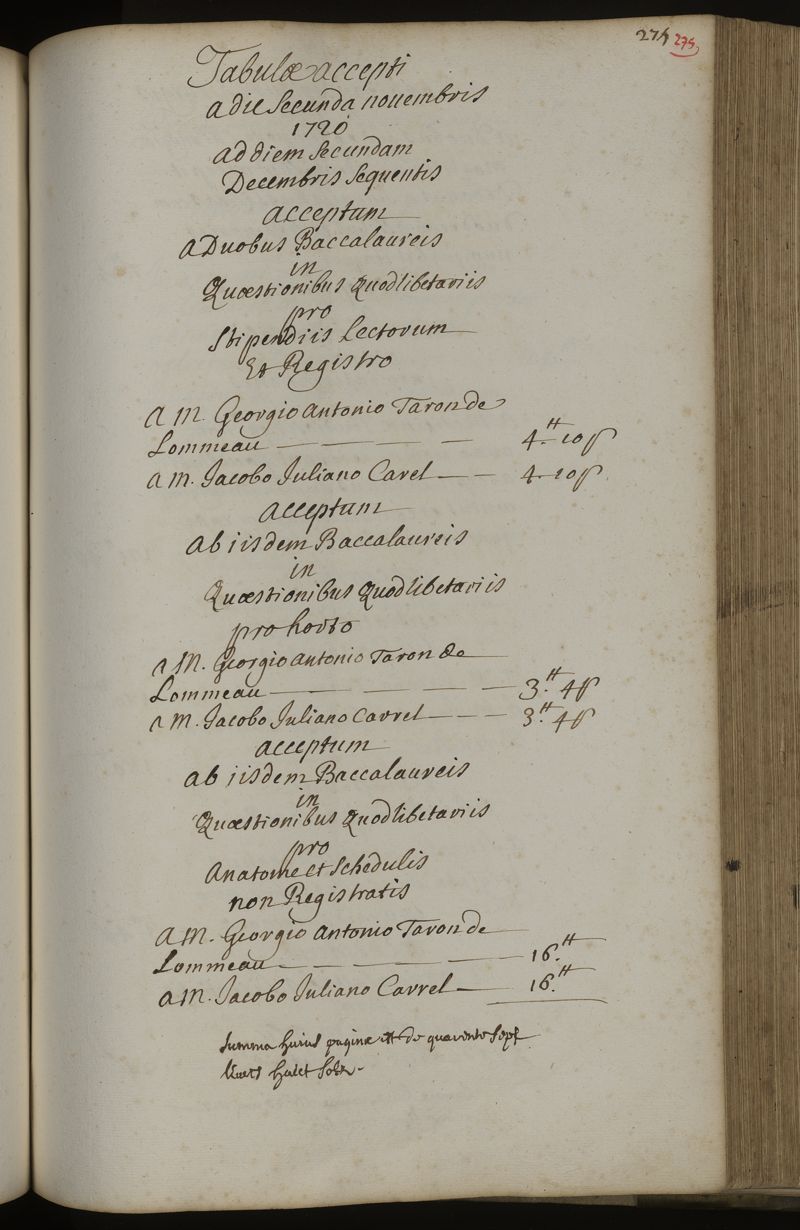 274 275
Tabulæ accepti
a die secunda nouembris
1720
ad diem secundam
Decembris sequentis
acceptum
a Duobus Baccalaureis
in
Quæstionibus Quodlibetariis
pro
Stipendiis lectorum
Et Registro
a M. Georgio antonio Taron de
Lommeau — — — — 4.tt 10 s
a M. Jacobo Juliano Carel — — 4. 10 s
acceptum
ab iisdem Baccalaureis
in
Quæstionibus Quodlibetariis
pro horto
a M. Georgio antonio Taron de
Lommeau — — — — 3.tt 4 s
a M. Jacobo Juliano Carrel — — — 3.tt 4 s
acceptum
ab iisdem Baccalaureis
in
Quæstionibus Quodlibetariis
pro
Anatome et schedulis
non Registratis
a M. Georgio antonio Taron de
Lommeau — — — — 16.tt
a M. Jacobo Juliano Carrel — 16.tt
Summa huius paginæ est de quarente sept
livres huict sols